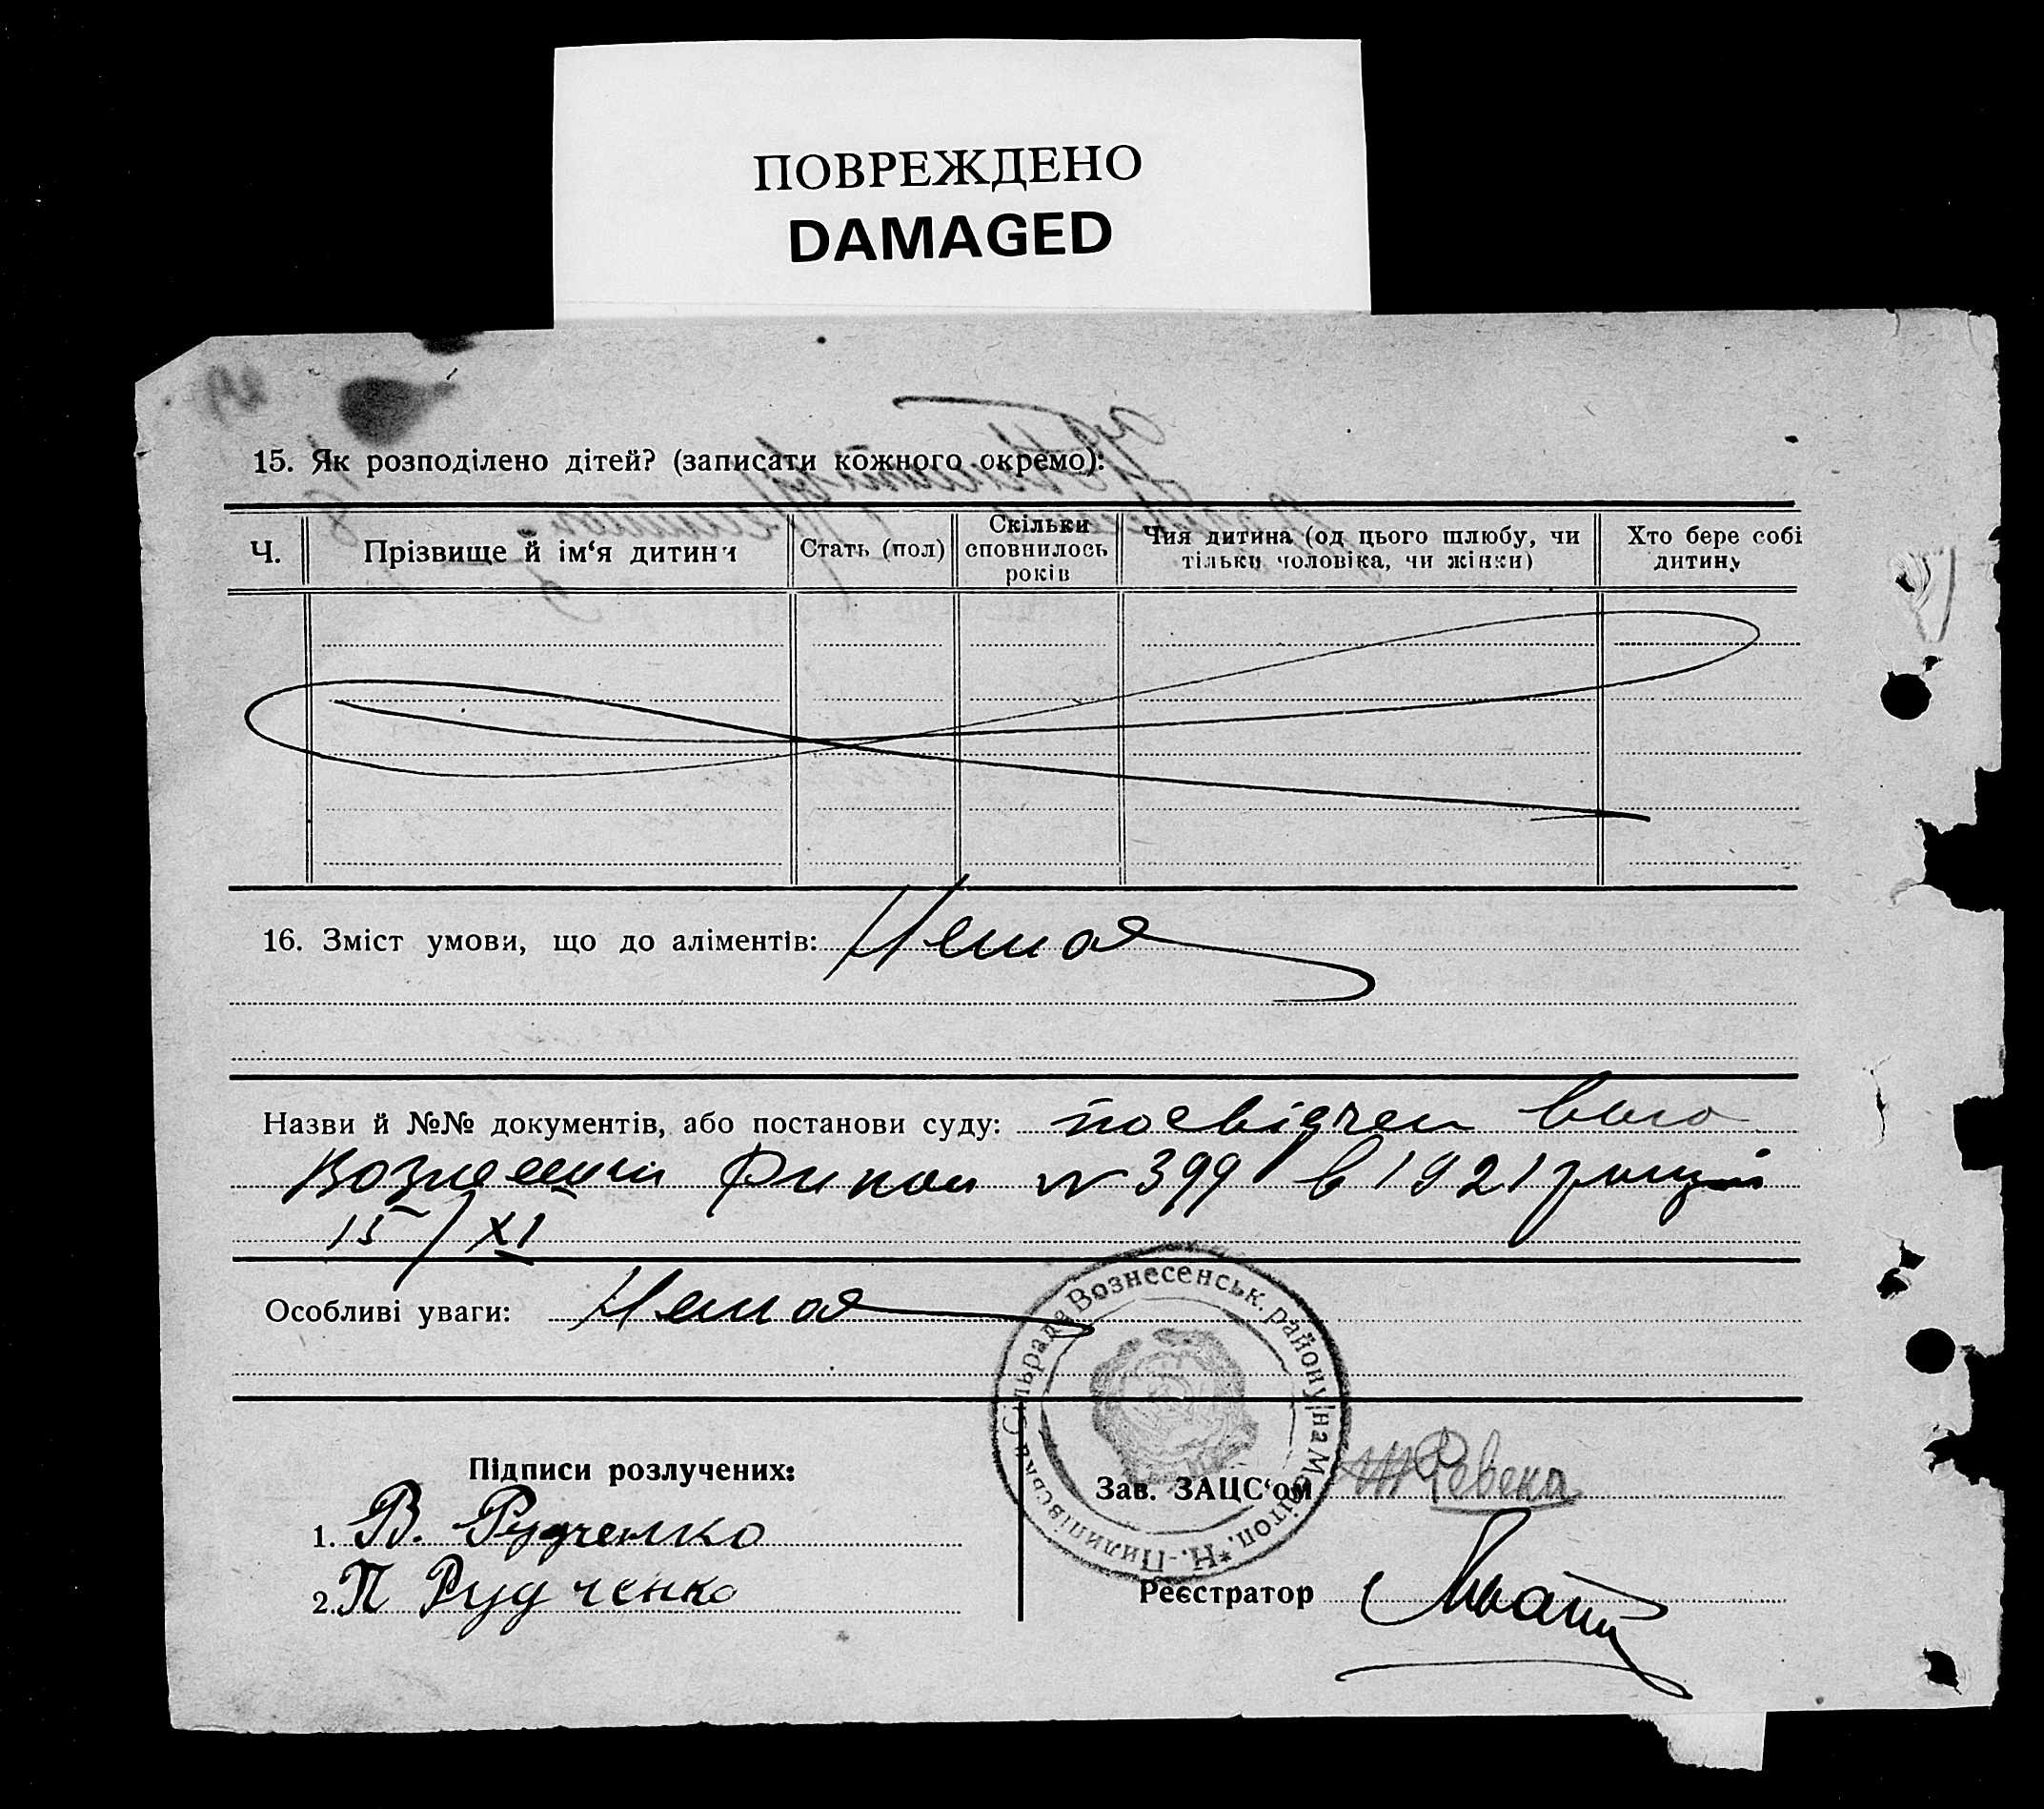 ПОВРЕЖДЕНО
DAMAGED
15. Як розподілено дітей? (записати кожного окремо):
Ч. Прізвище й ім‘я дитини Стать (пол) Скільки сповнилось років Чия дитина (од цього шлюбу, чи тільки чоловіка, чи жінки) Хто бере собі дитину
16. Зміст умови, що до аліментів: Немає
Назви й №№ документів, або постанови суду: посвідчен
№ 399 в 1921 році
15/XI
Особливі уваги: Немає
Н.-Пилипівська Сільрада Вознесенськ. району на Мелітоп. *
Підписи розлучених:
1. В. Рудченко
2. П Рудченко
Зав. ЗАЦС‘ом Ревека
Реєстратор